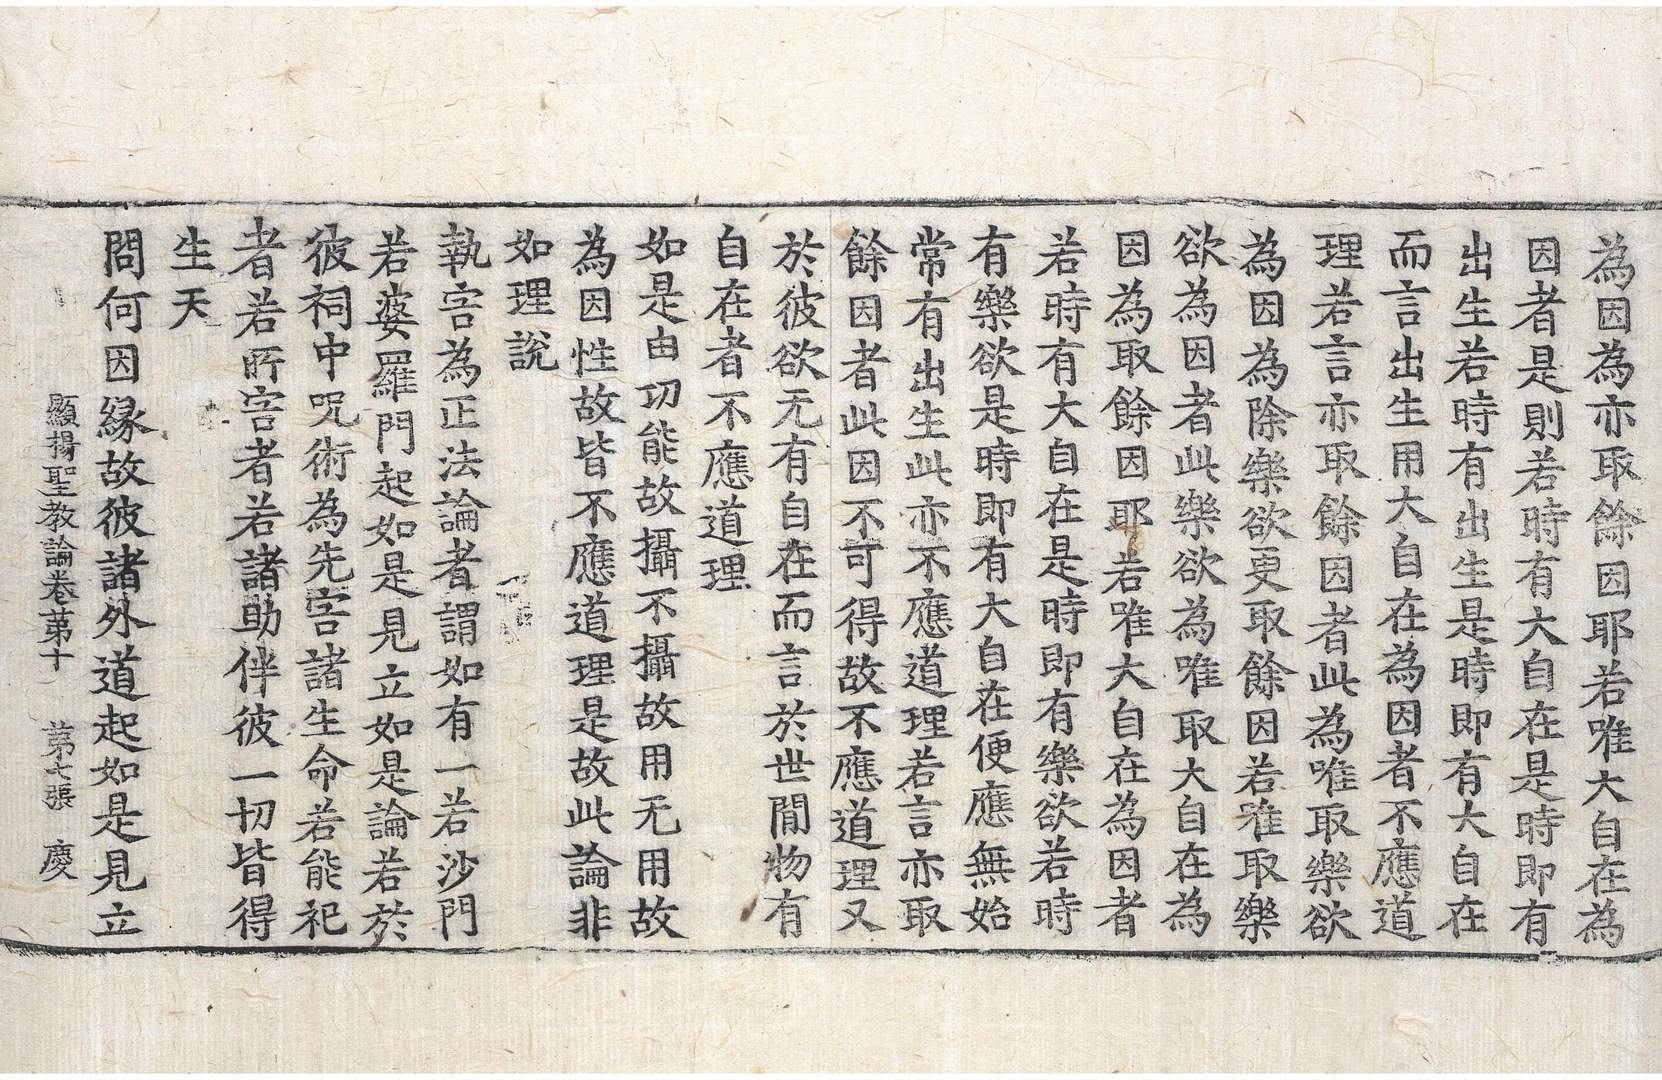 為因為亦取餘因耶若唯大自在為
因者是則若時有大自在是時即有
出生若時有出生是時即有大自在
而言出生用大自在為因者不應道
理若言亦取餘因者此為唯取樂欲
為因為除樂欲更取餘因若唯取樂
欲為因者此樂欲為唯取大自在為
因為取餘因耶若唯大自在為因者
若時有大自在是時即有樂欲若時
有樂欲是時即有大自在便應無始
常有出生此亦不應道理若言亦取
餘因者此因不可得故不應道理又
於彼欲无有自在而言於世閒物有
自在者不應道理
如是由功能故攝不攝故用无用故
為因性故皆不應道理是故此論非
如理說
執害為正法論者謂如有一若沙門
若婆羅門起如是見立如是論若於
彼祠中呪術為先害諸生命若能祀
者若所害者若諸助伴彼一切皆得
生天
問何因緣故彼諸外道起如是見立
顯揚聖教論卷第十 第七張 慶